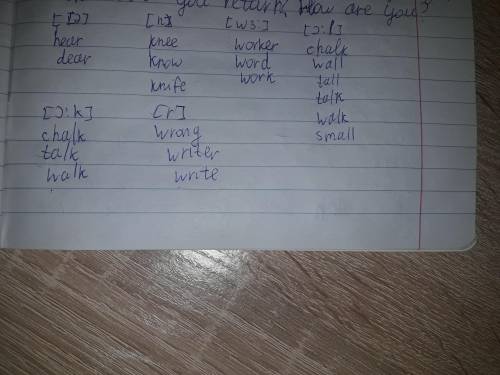 you return, How are you?
[ɪə] [n] [wɜ:] [ɔ:l]
hear knee worker chalk
dear know word wall
knife work tall
talk
walk
[ɔ:k] [r] small
chalk wrong
talk writer
walk write